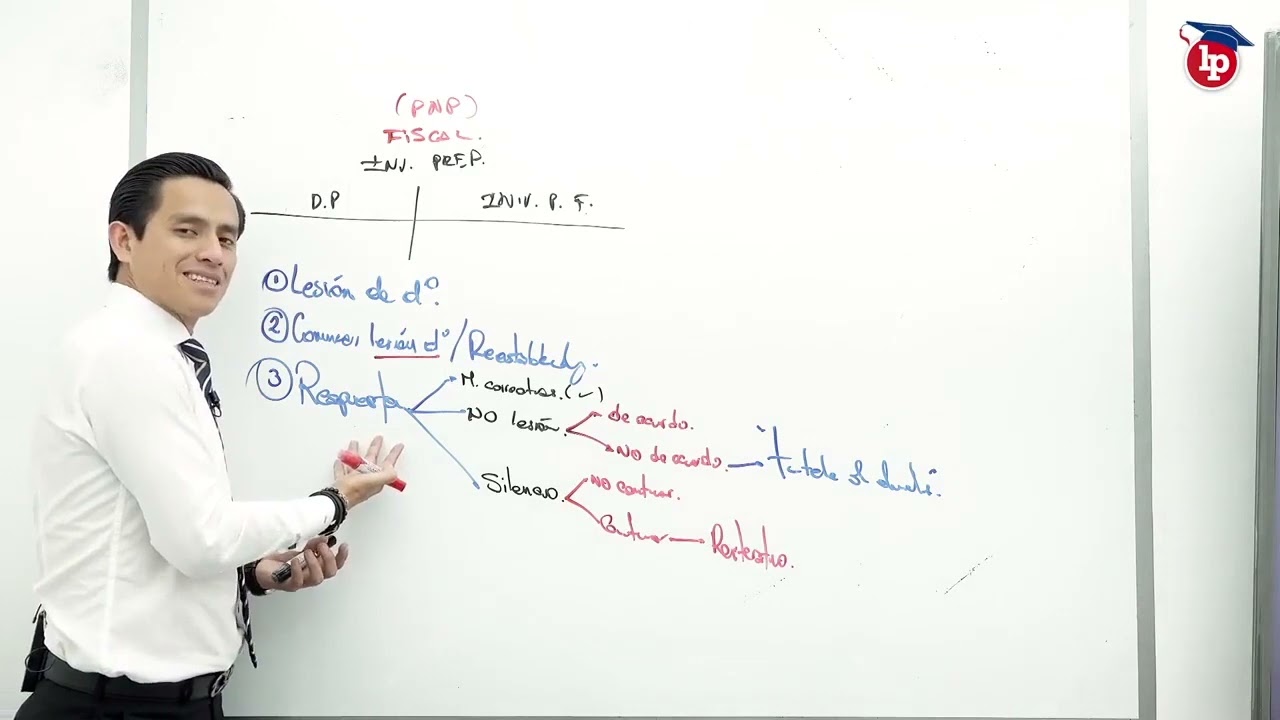 lp
(PNP)
FISCAL.
INV. PREP.
D.P
INV. P. F.
① Lesión de dº.
② lesión dº /
③ Respuesta
M. correctivas. (✓)
NO lesión.
de acuerdo.
NO de acuerdo.
"Tutela
Silencio.
NO continuar.
Continuar
Reiterativo.